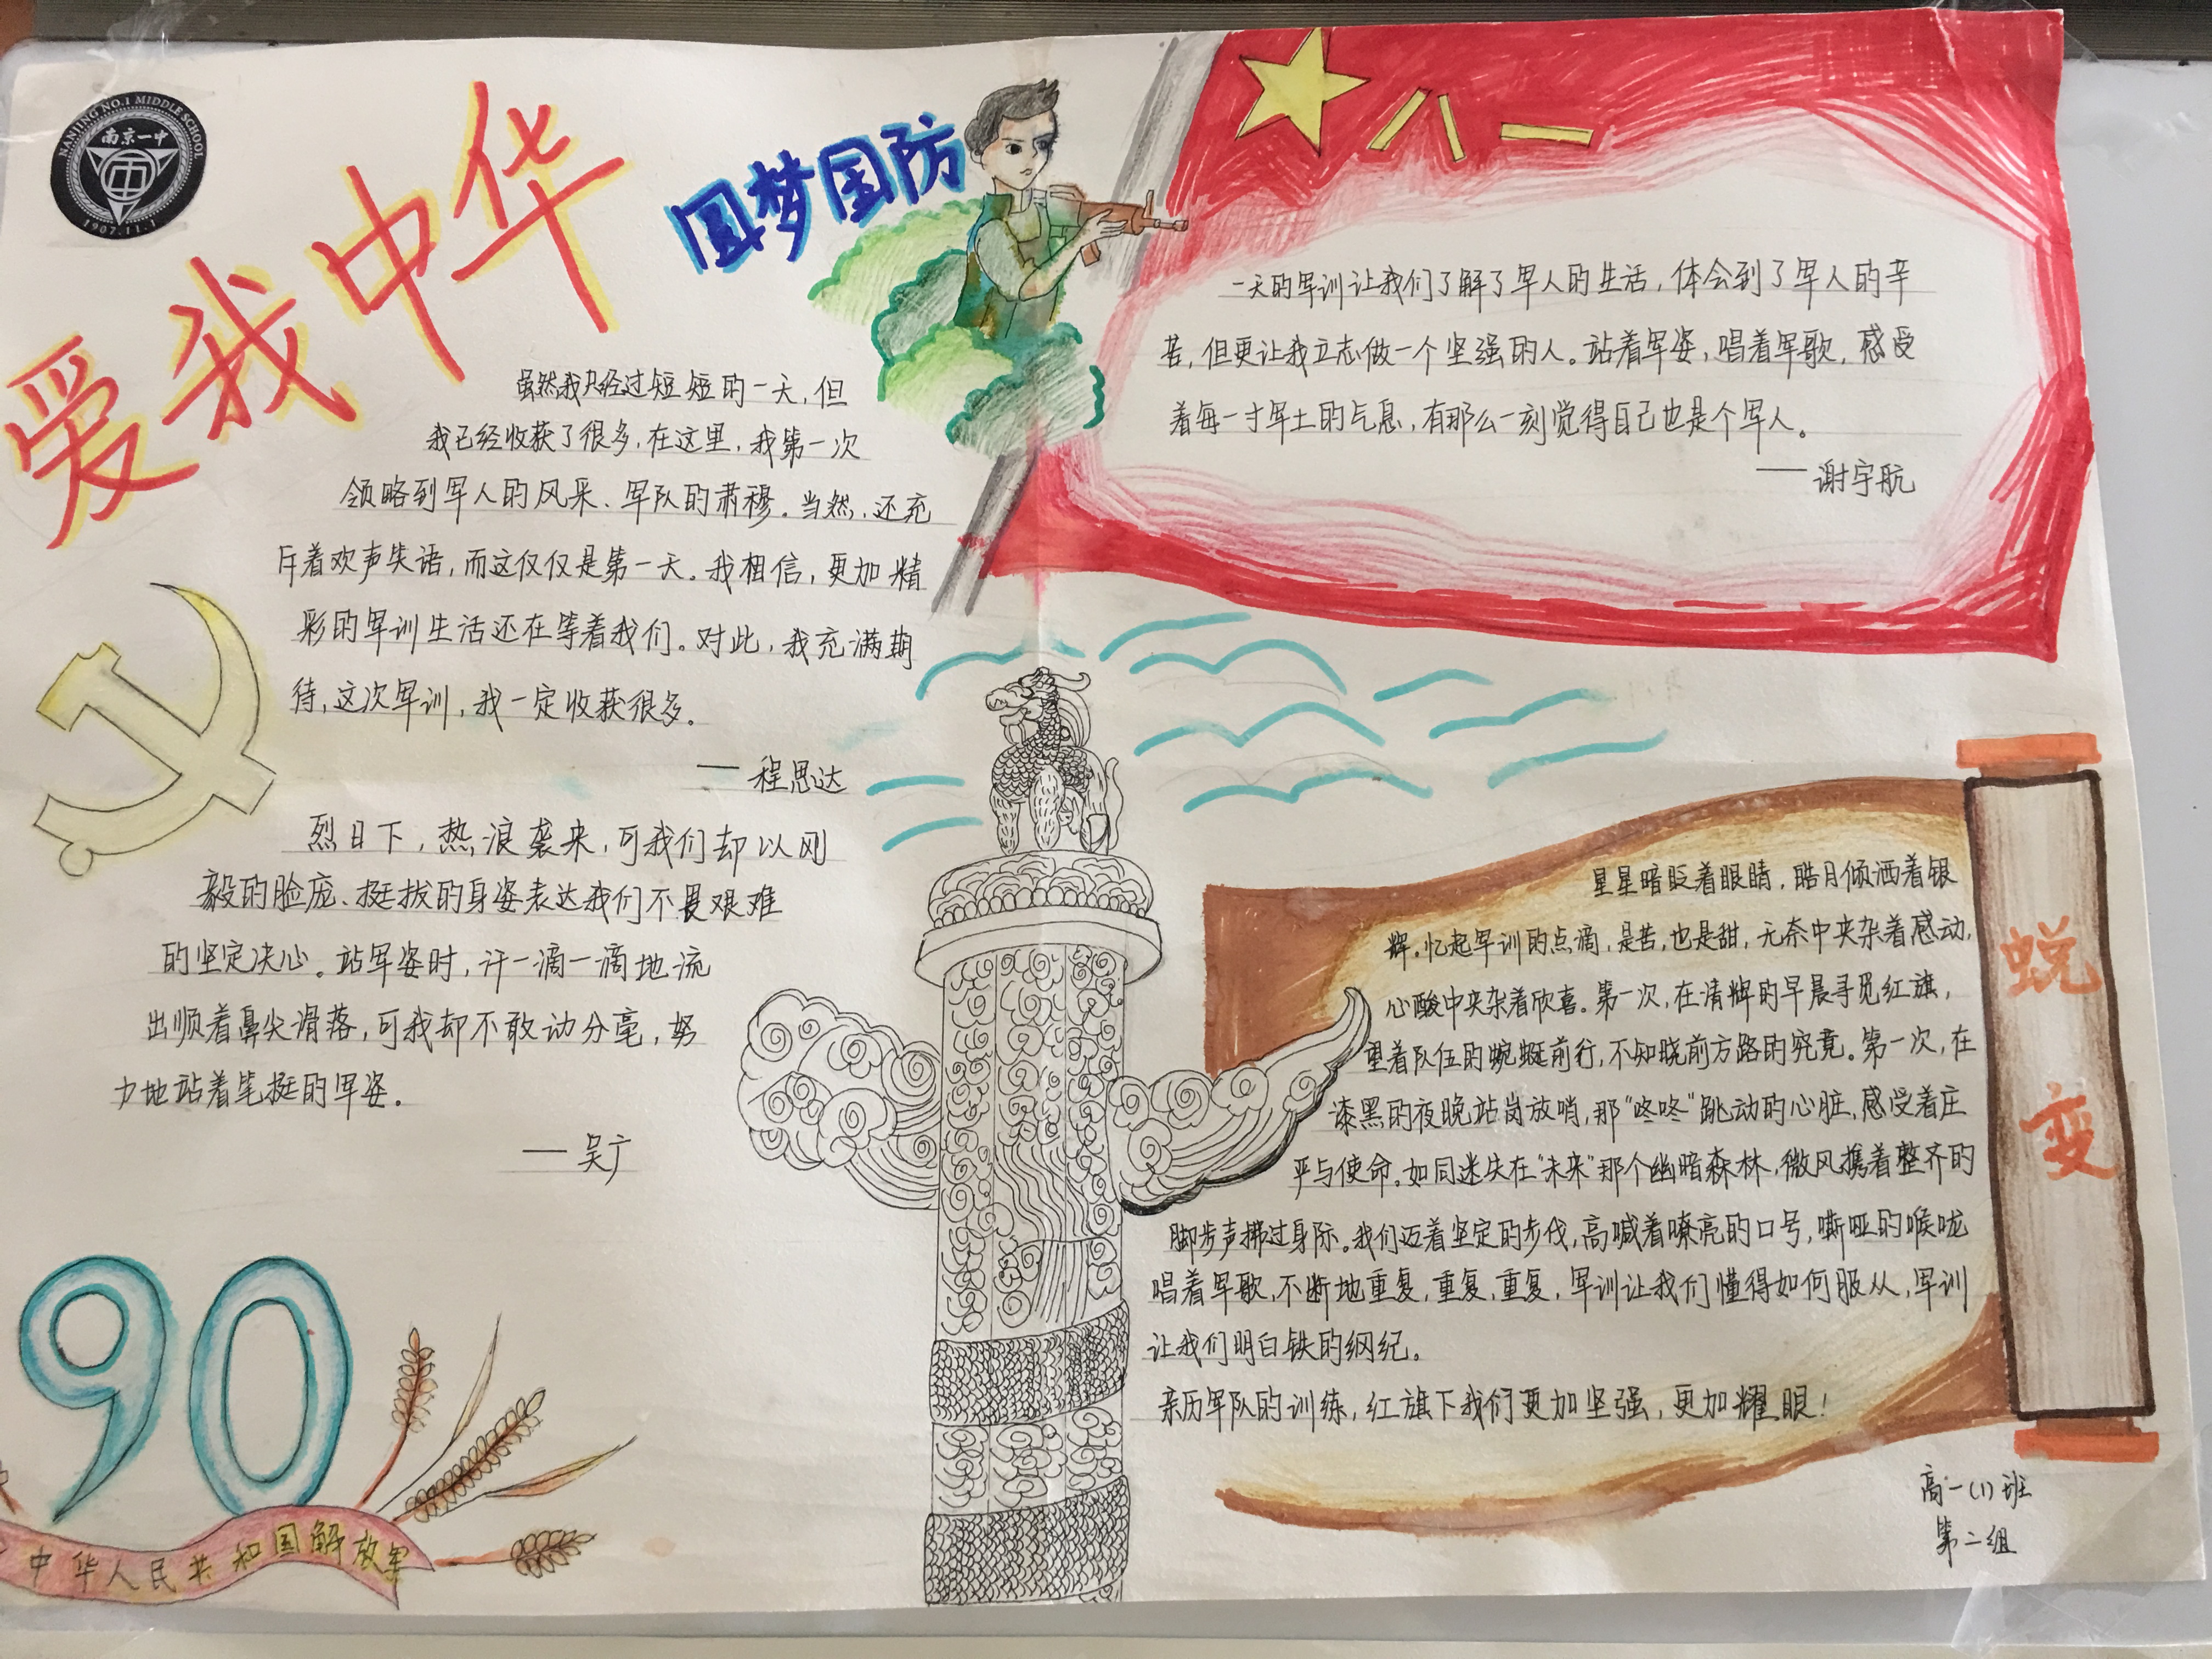 NANJING NO.1 MIDDLE SCHOOL
南京一中
1907.11.1
爱我中华
圆梦国防
八一
虽然我只经过短短的一天，但
我已经收获了很多，在这里，我第一次
领略到军人的风采、军队的肃穆。当然，还充
斥着欢声笑语，而这仅仅是第一天。我相信，更加精
彩的军训生活还在等着我们。对此，我充满期
待，这次军训，我一定收获很多。
——程思达
烈日下，热浪袭来，可我们却以刚
毅的脸庞、挺拔的身姿表达我们不畏艰难
的坚定决心。站军姿时，汗一滴一滴地流
出顺着鼻尖滑落，可我却不敢动分毫，努
力地站着笔挺的军姿。
——吴广
90
中华人民共和国解放军
一天的军训让我们了解了军人的生活，体会到了军人的辛
苦，但更让我立志做一个坚强的人。站着军姿，唱着军歌，感受
着每一寸军土的气息，有那么一刻觉得自己也是个军人。
——谢宇航
蜕变
星星暗眨着眼睛，皓月倾洒着银
辉。忆起军训的点滴，是苦，也是甜，无奈中夹杂着感动，
心酸中夹杂着欣喜。第一次，在清辉的早晨寻觅红旗，
望着队伍的蜿蜒前行，不知晓前方路的究竟。第一次，在
漆黑的夜晚站岗放哨，那“咚咚”跳动的心脏，感受着庄
严与使命。如同迷失在“未来”那个幽暗森林，微风携着整齐的
脚步声拂过身际。我们迈着坚定的步伐，高喊着嘹亮的口号，嘶哑的喉咙
唱着军歌，不断地重复，重复，重复，军训让我们懂得如何服从，军训
让我们明白铁的纲纪。
亲历军队的训练，红旗下我们更加坚强，更加耀眼！
高一(1)班
第二组